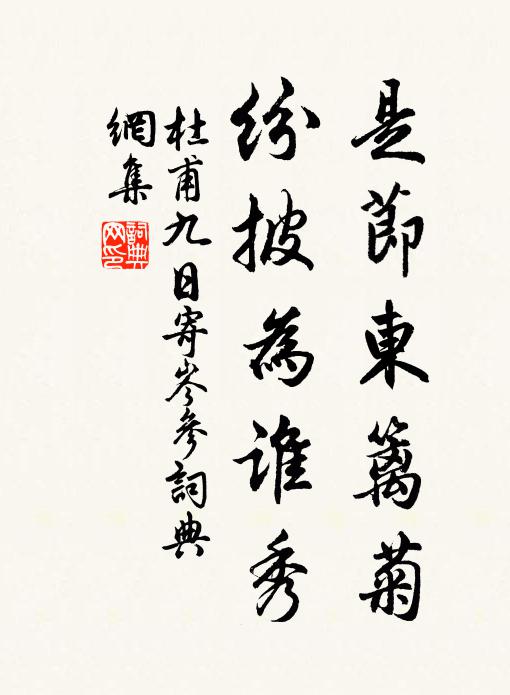 是節東籬菊
紛披為誰秀
杜甫九日寄岑參詞典
網集
詞典
网印